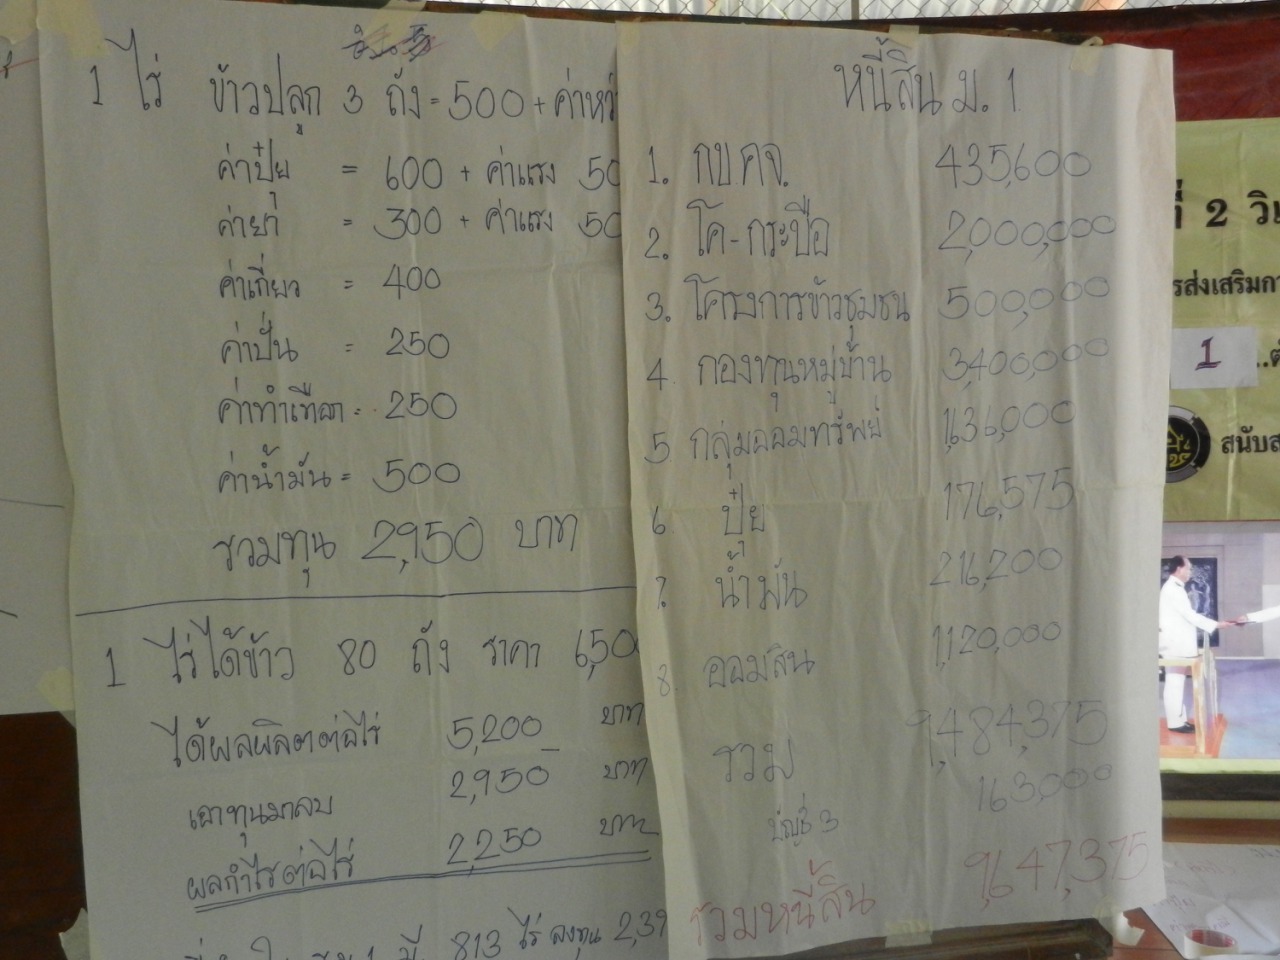 1 ไร่ ข้าวปลูก 3 ถัง = 500 + ค่าหว่
ค่าปุ๋ย = 600 + ค่าแรง 50
ค่ายา = 300 + ค่าแรง 50
ค่าเกี่ยว = 400
ค่าปั่น = 250
ค่าทำเทือก = 250
ค่าน้ำมัน = 500
รวมทุน 2,950 บาท
1 ไร่ได้ข้าว 80 ถัง ราคา 6,500
ได้ผลผลิตต่อไร่ 5,200 บาท
เอาทุนมาลบ 2,950 บาท
ผลกำไรต่อไร่ 2,250 บาท
813 ไร่ ลงทุน 2,39
หนี้สิน ม. 1
1. กข.คจ. 435,600
2. โค-กระบือ 2,000,000
3. โครงการข้าวชุมชน 500,000
4. กองทุนหมู่บ้าน 3,400,000
5 กลุ่มออมทรัพย์ 1,636,000
6. ปุ๋ย 176,575
7. น้ำมัน 216,200
8. ออมสิน 1,120,000
รวม 9,484,375
บัญชี 3 163,000
รวมหนี้สิน 9,647,375
ที่ 2
รส่งเสริมกา
1
สนับส